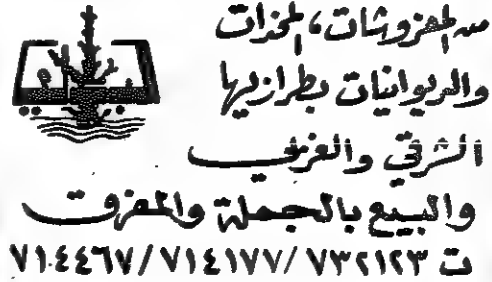 من المفروشات، المخدات
والديوانيات بطرازيها
الشرقي والغربي
والبيع بالجملة والمفرق
ت ٧٣٢١٢٣ / ٧١٤١٧٧ / ٧١٠٤٤٦٧